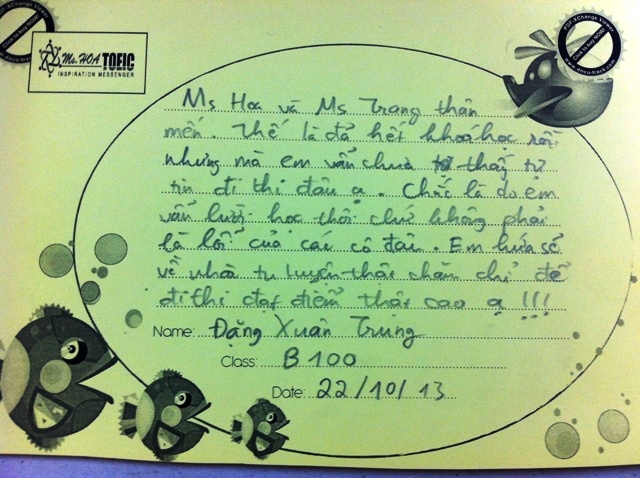 Ms. HOA TOEIC
INSPIRATION MESSENGER
PDF-XChange Viewer
Click to buy NOW!
www.docu-track.com
Ms Hoa và Ms Trang thân
mến. Thế là đã hết khoá học rồi
nhưng mà em vẫn chưa thấy tự
tin đi thi đâu ạ. Chắc là do em
vẫn lười học thôi chứ không phải
là lỗi của các cô đâu. Em hứa sẽ
về nhà tự luyện thật chăm chỉ để
đi thi đạt điểm thật cao ạ !!!
Name: Đặng Xuân Trung
Class: B100
Date: 22/10/13